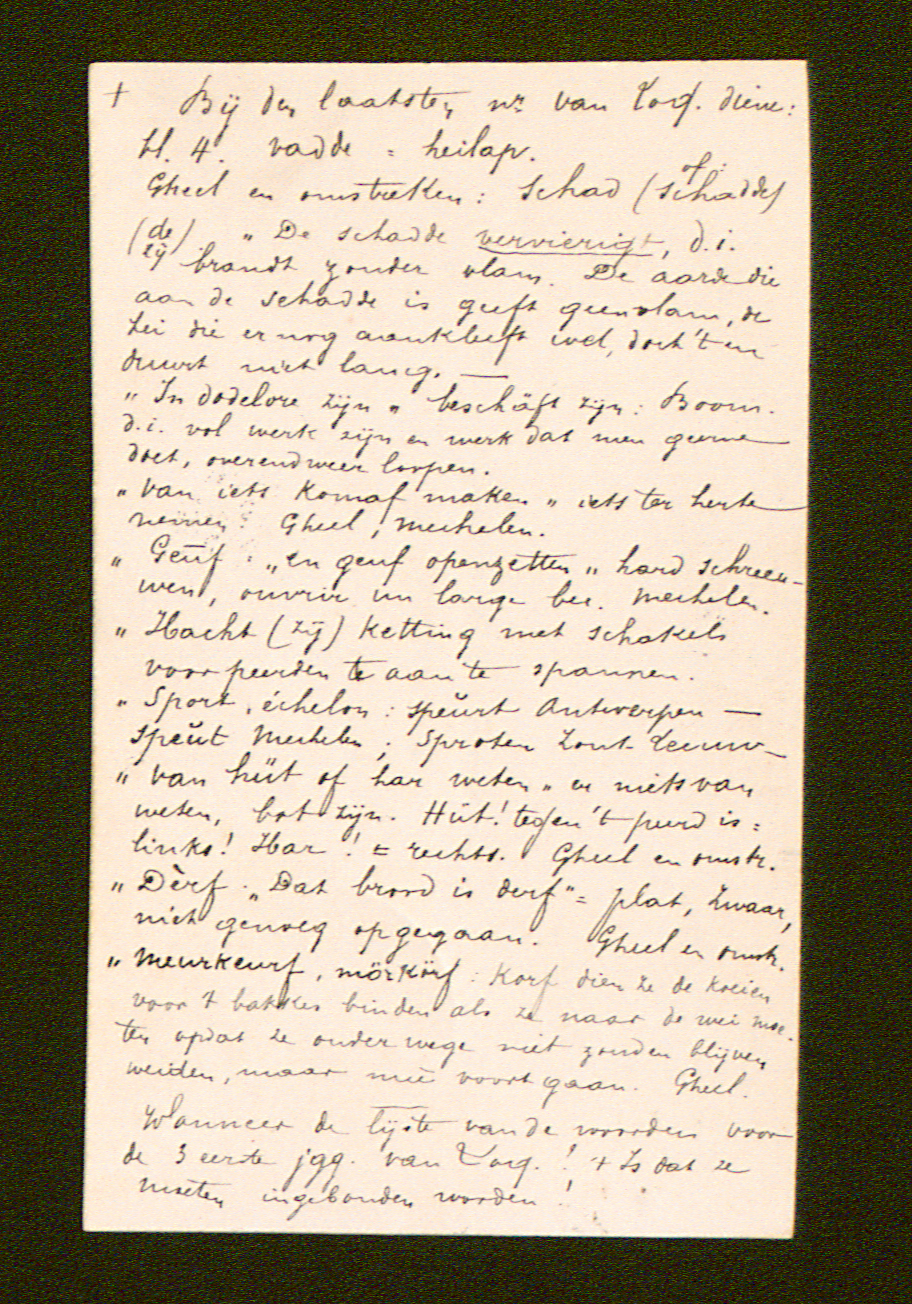 + Bij den laatsten nr van Loq. diene:
bl. 4. vadde = heilap.
Gheel en omstreken: schad (of: schadde)
(de zij). "De schadde verviernigt, d.i.
brandt zonder vlam. De aarde die
aan de schadde is geeft geen vlam, de
hei die er nog aankleeft wel, doch 't en
duurt niet lang. —
" In dodelore zijn " beschäft zijn: Boom.
d.i. vol werk zijn en werk dat men geerne
doet, overendweer loopen.
" Van iets komaf maken " iets ter herte
nemen: Gheel, Mechelen.
" Geuf: "en geuf openzetten " hard schreeu-
wen, ouvrir un large bec. Mechelen.
" Hacht (zij) Ketting met schakels
voor peerden te aan te spannen.
" Sport, échelon: speurt Antwerpen —
speut Mechelen; Sproten Zout-Leeuw
" Van hüt of har weten " er niets van
weten, bot zijn. Hüt! tegen 't peerd is =
links! Har! = rechts. Gheel en omstr.
" Dèrf. "Dat brood is derf" = plat, zwaar,
niet genoeg opgegaan. Gheel en omstr.
" Meurkeurf, mörkörf: Korf dien ze de koeien
voor 't bakkes binden als ze naar de wei moe-
ten opdat ze onderwege niet zouden blijven
weiden, maar voort gaan. Gheel.
Wanneer de lijste van de woorden voor
de 3 eerste jgg. van Loq.! 't Is dat ze
moeten ingebonden worden!